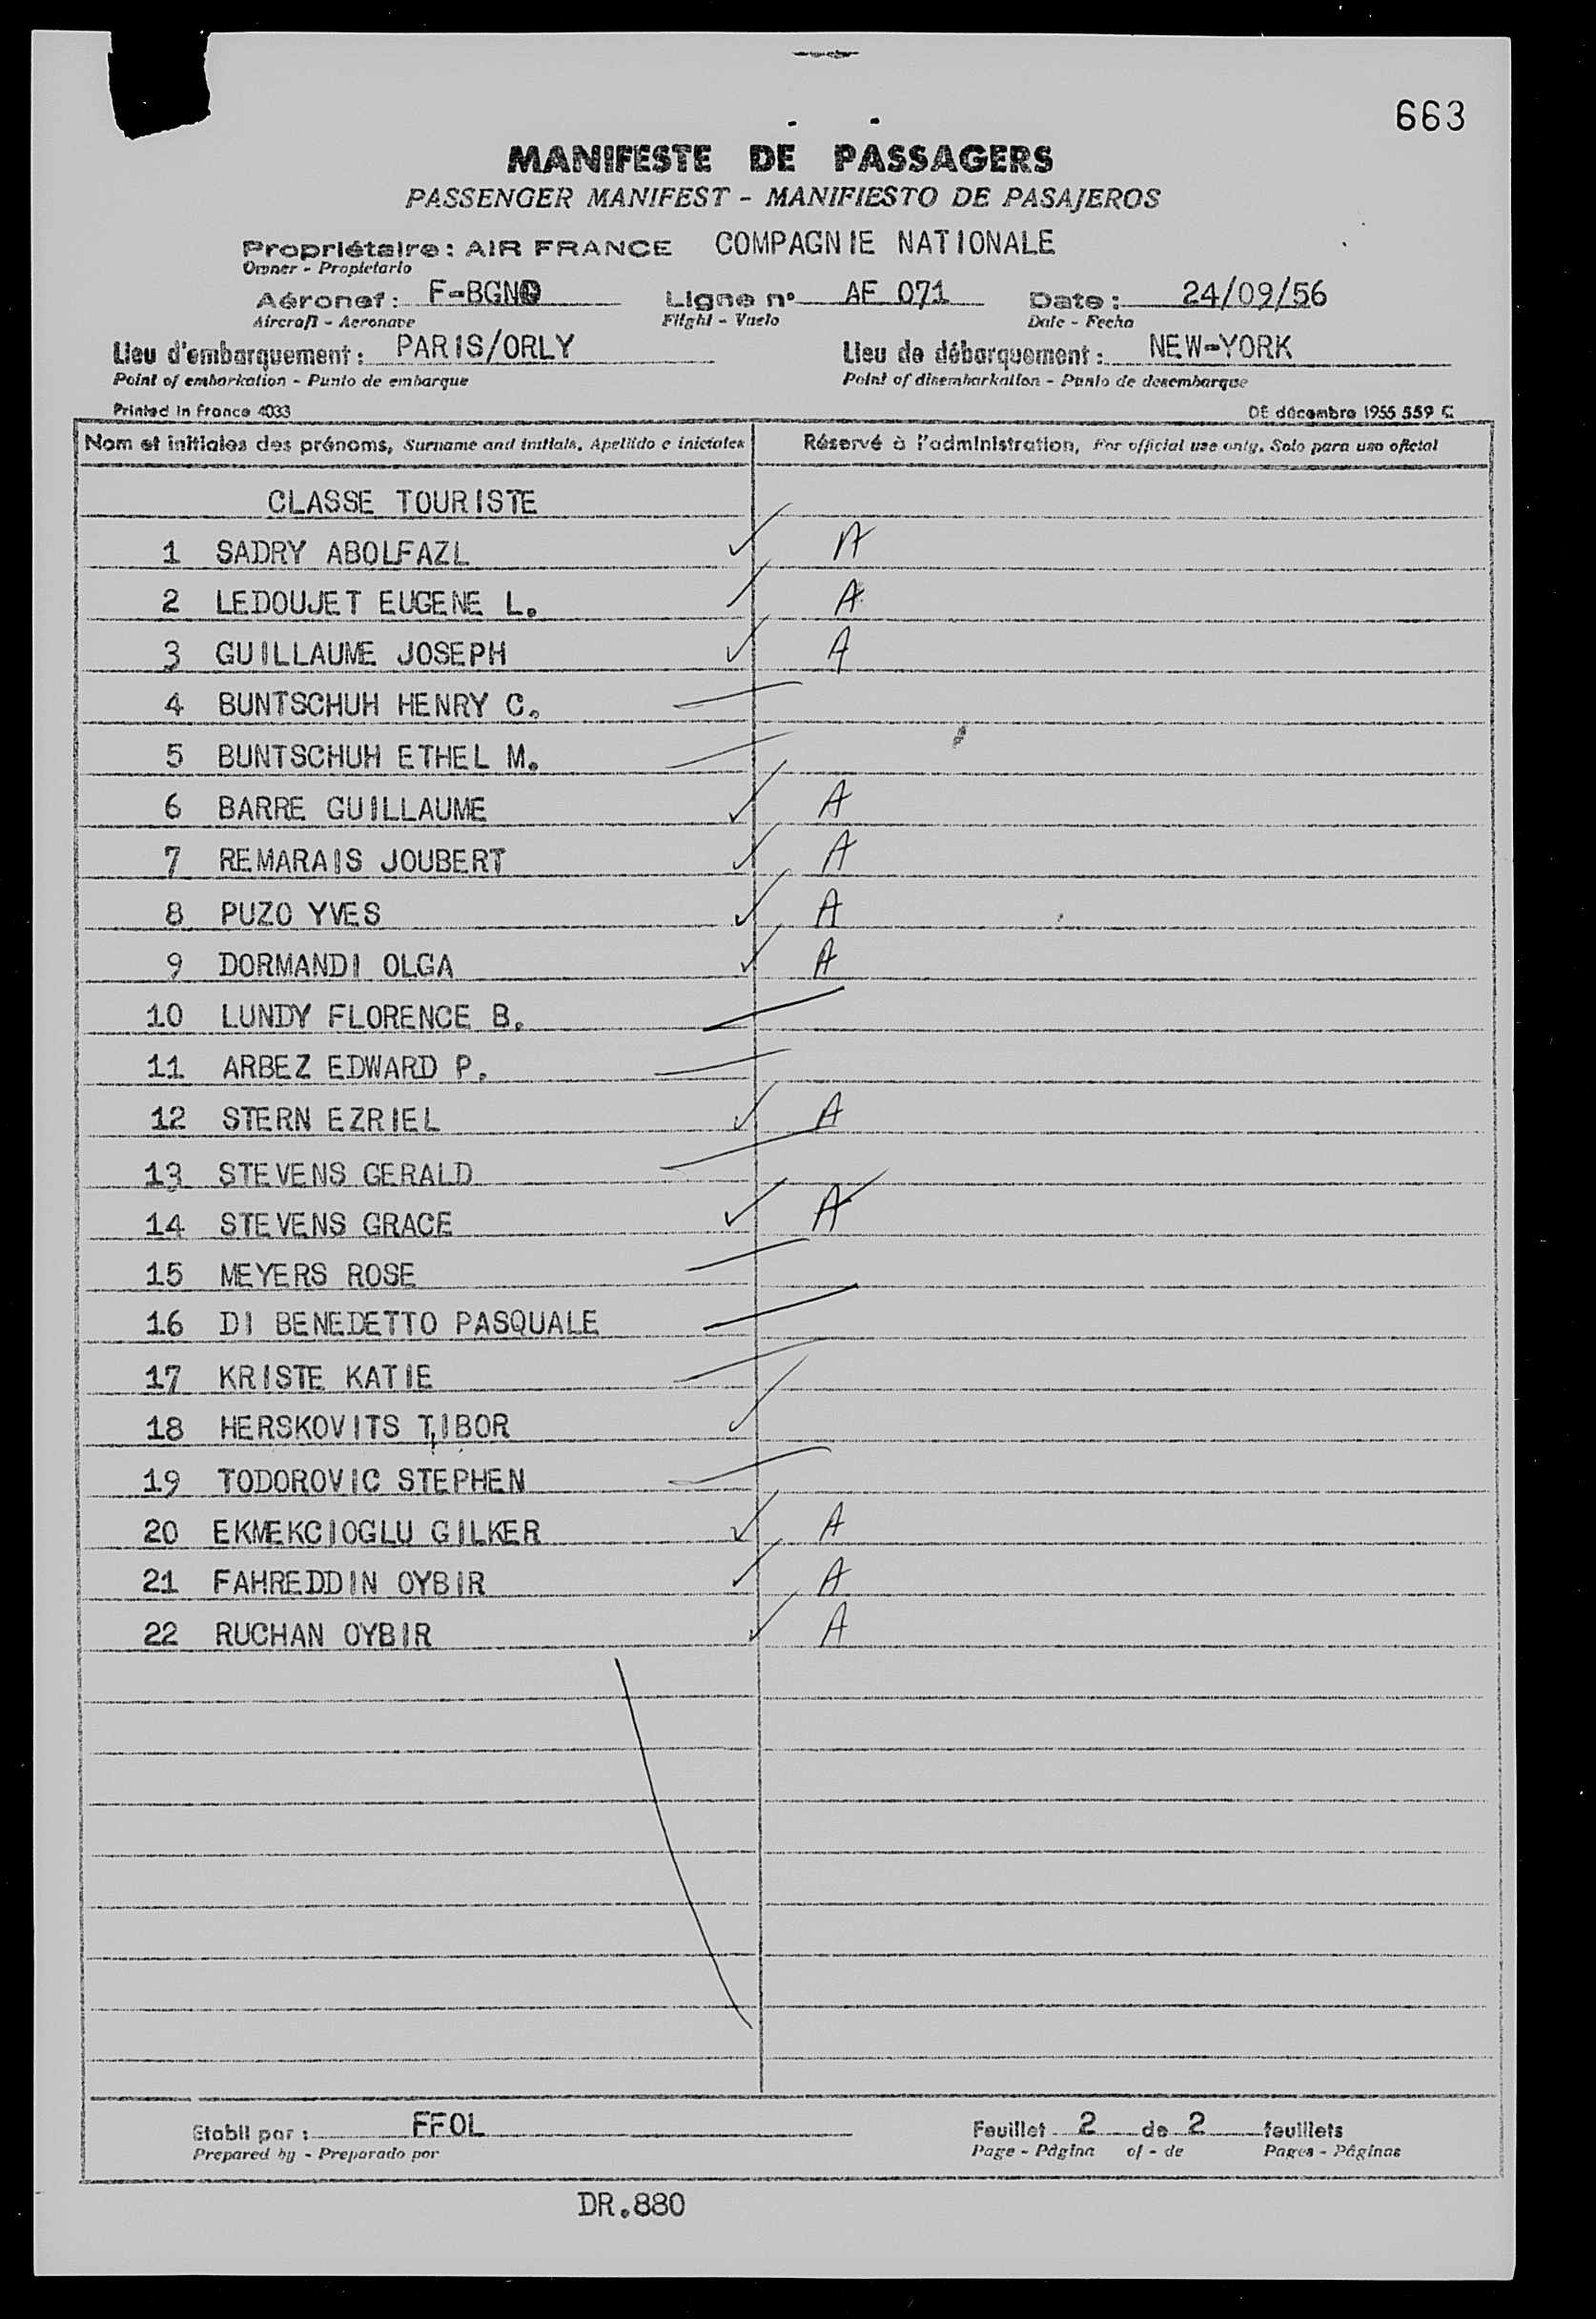 663
MANIFESTE DE PASSAGERS
PASSENGER MANIFEST - MANIFIESTO DE PASAJEROS
Propriétaire : AIR FRANCE COMPAGNIE NATIONALE
Owner - Propietario
Aéronef : F-BGN Ligne n° AF 071 Date : 24/09/56
Aircraft - Aeronave Flight - Vuelo Date - Fecha
Lieu d'embarquement : PARIS/ORLY Lieu de débarquement : NEW-YORK
Point of embarkation - Punto de embarque Point of disembarkation - Punto de desembarque
Printed in France 4033 DE décembre 1955 559 C
Nom et initiales des prénoms, Surname and initials, Apellido e iniciales Réservé à l'administration, For official use only, Solo para uso oficial
CLASSE TOURISTE
1 SADRY ABOLFAZL A
2 LEDOUJET EUGENE L. A
3 GUILLAUME JOSEPH A
4 BUNTSCHUH HENRY C.
5 BUNTSCHUH ETHEL M.
6 BARRE GUILLAUME A
7 REMARAIS JOUBERT A
8 PUZO YVES A
9 DORMANDI OLGA A
10 LUNDY FLORENCE B.
11 ARBEZ EDWARD P.
12 STERN EZRIEL A
13 STEVENS GERALD
14 STEVENS GRACE A
15 MEYERS ROSE
16 DI BENEDETTO PASQUALE
17 KRISTE KATIE
18 HERSKOVITS TIBOR
19 TODOROVIC STEPHEN
20 EKMEKCIOGLU GILKER A
21 FAHREDDIN OYBIR A
22 RUCHAN OYBIR A
Etabli par : FFOL Feuillet 2 de 2 feuillets
Prepared by - Preparado por Page - Página of - de Pages - Páginas
DR.880